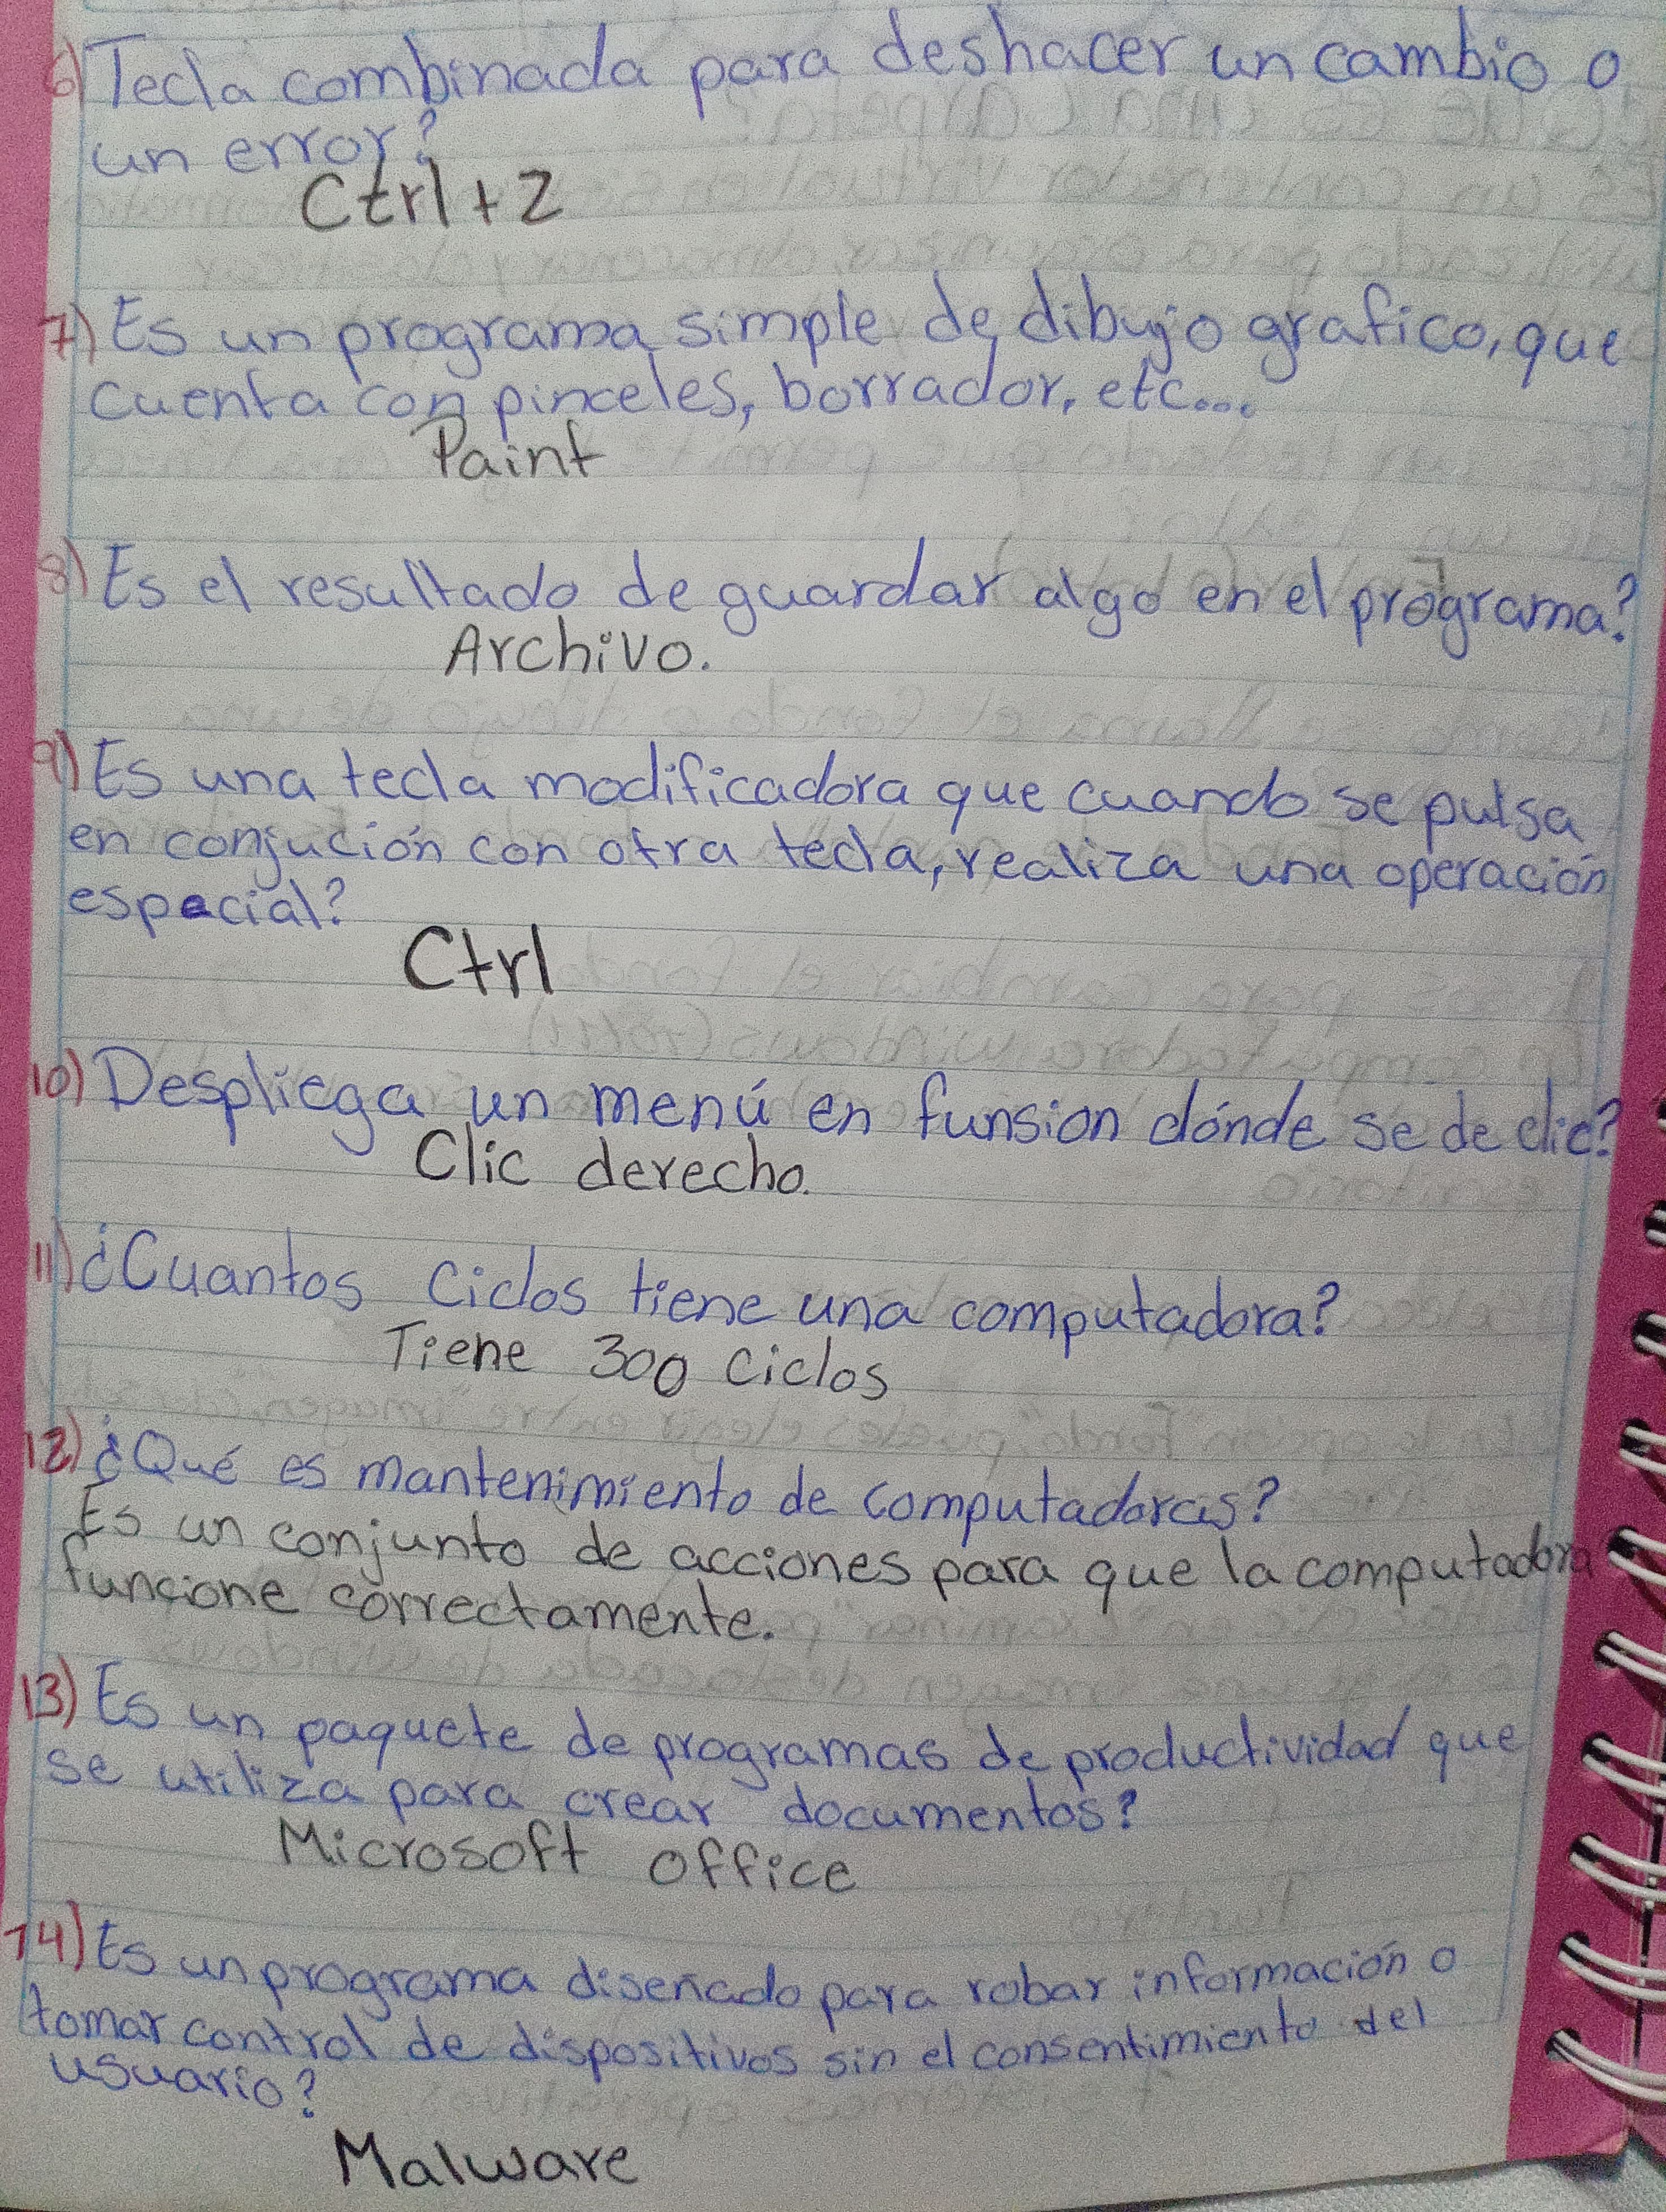 6) Tecla combinada para deshacer un cambio o
un error?
Ctrl + Z
7) Es un programa simple de dibujo grafico, que
cuenta con pinceles, borrador, etc....
Paint
8) Es el resultado de guardar algo en el programa?
Archivo.
9) Es una tecla modificadora que cuando se pulsa
en conjución con otra tecla, realiza una operación
especial?
Ctrl
10) Despliega un menú en funsion dónde se de clic?
Clic derecho.
11) ¿Cuantos Ciclos tiene una computadora?
Tiene 300 Ciclos
12) ¿Qué es mantenimiento de computadoras?
Es un conjunto de acciones para que la computadora
funcione correctamente.
13) Es un paquete de programas de productividad que
se utiliza para crear documentos?
Microsoft office
14) Es un programa diseñado para robar información o
tomar control de dispositivos sin el consentimiento del
usuario?
Malware